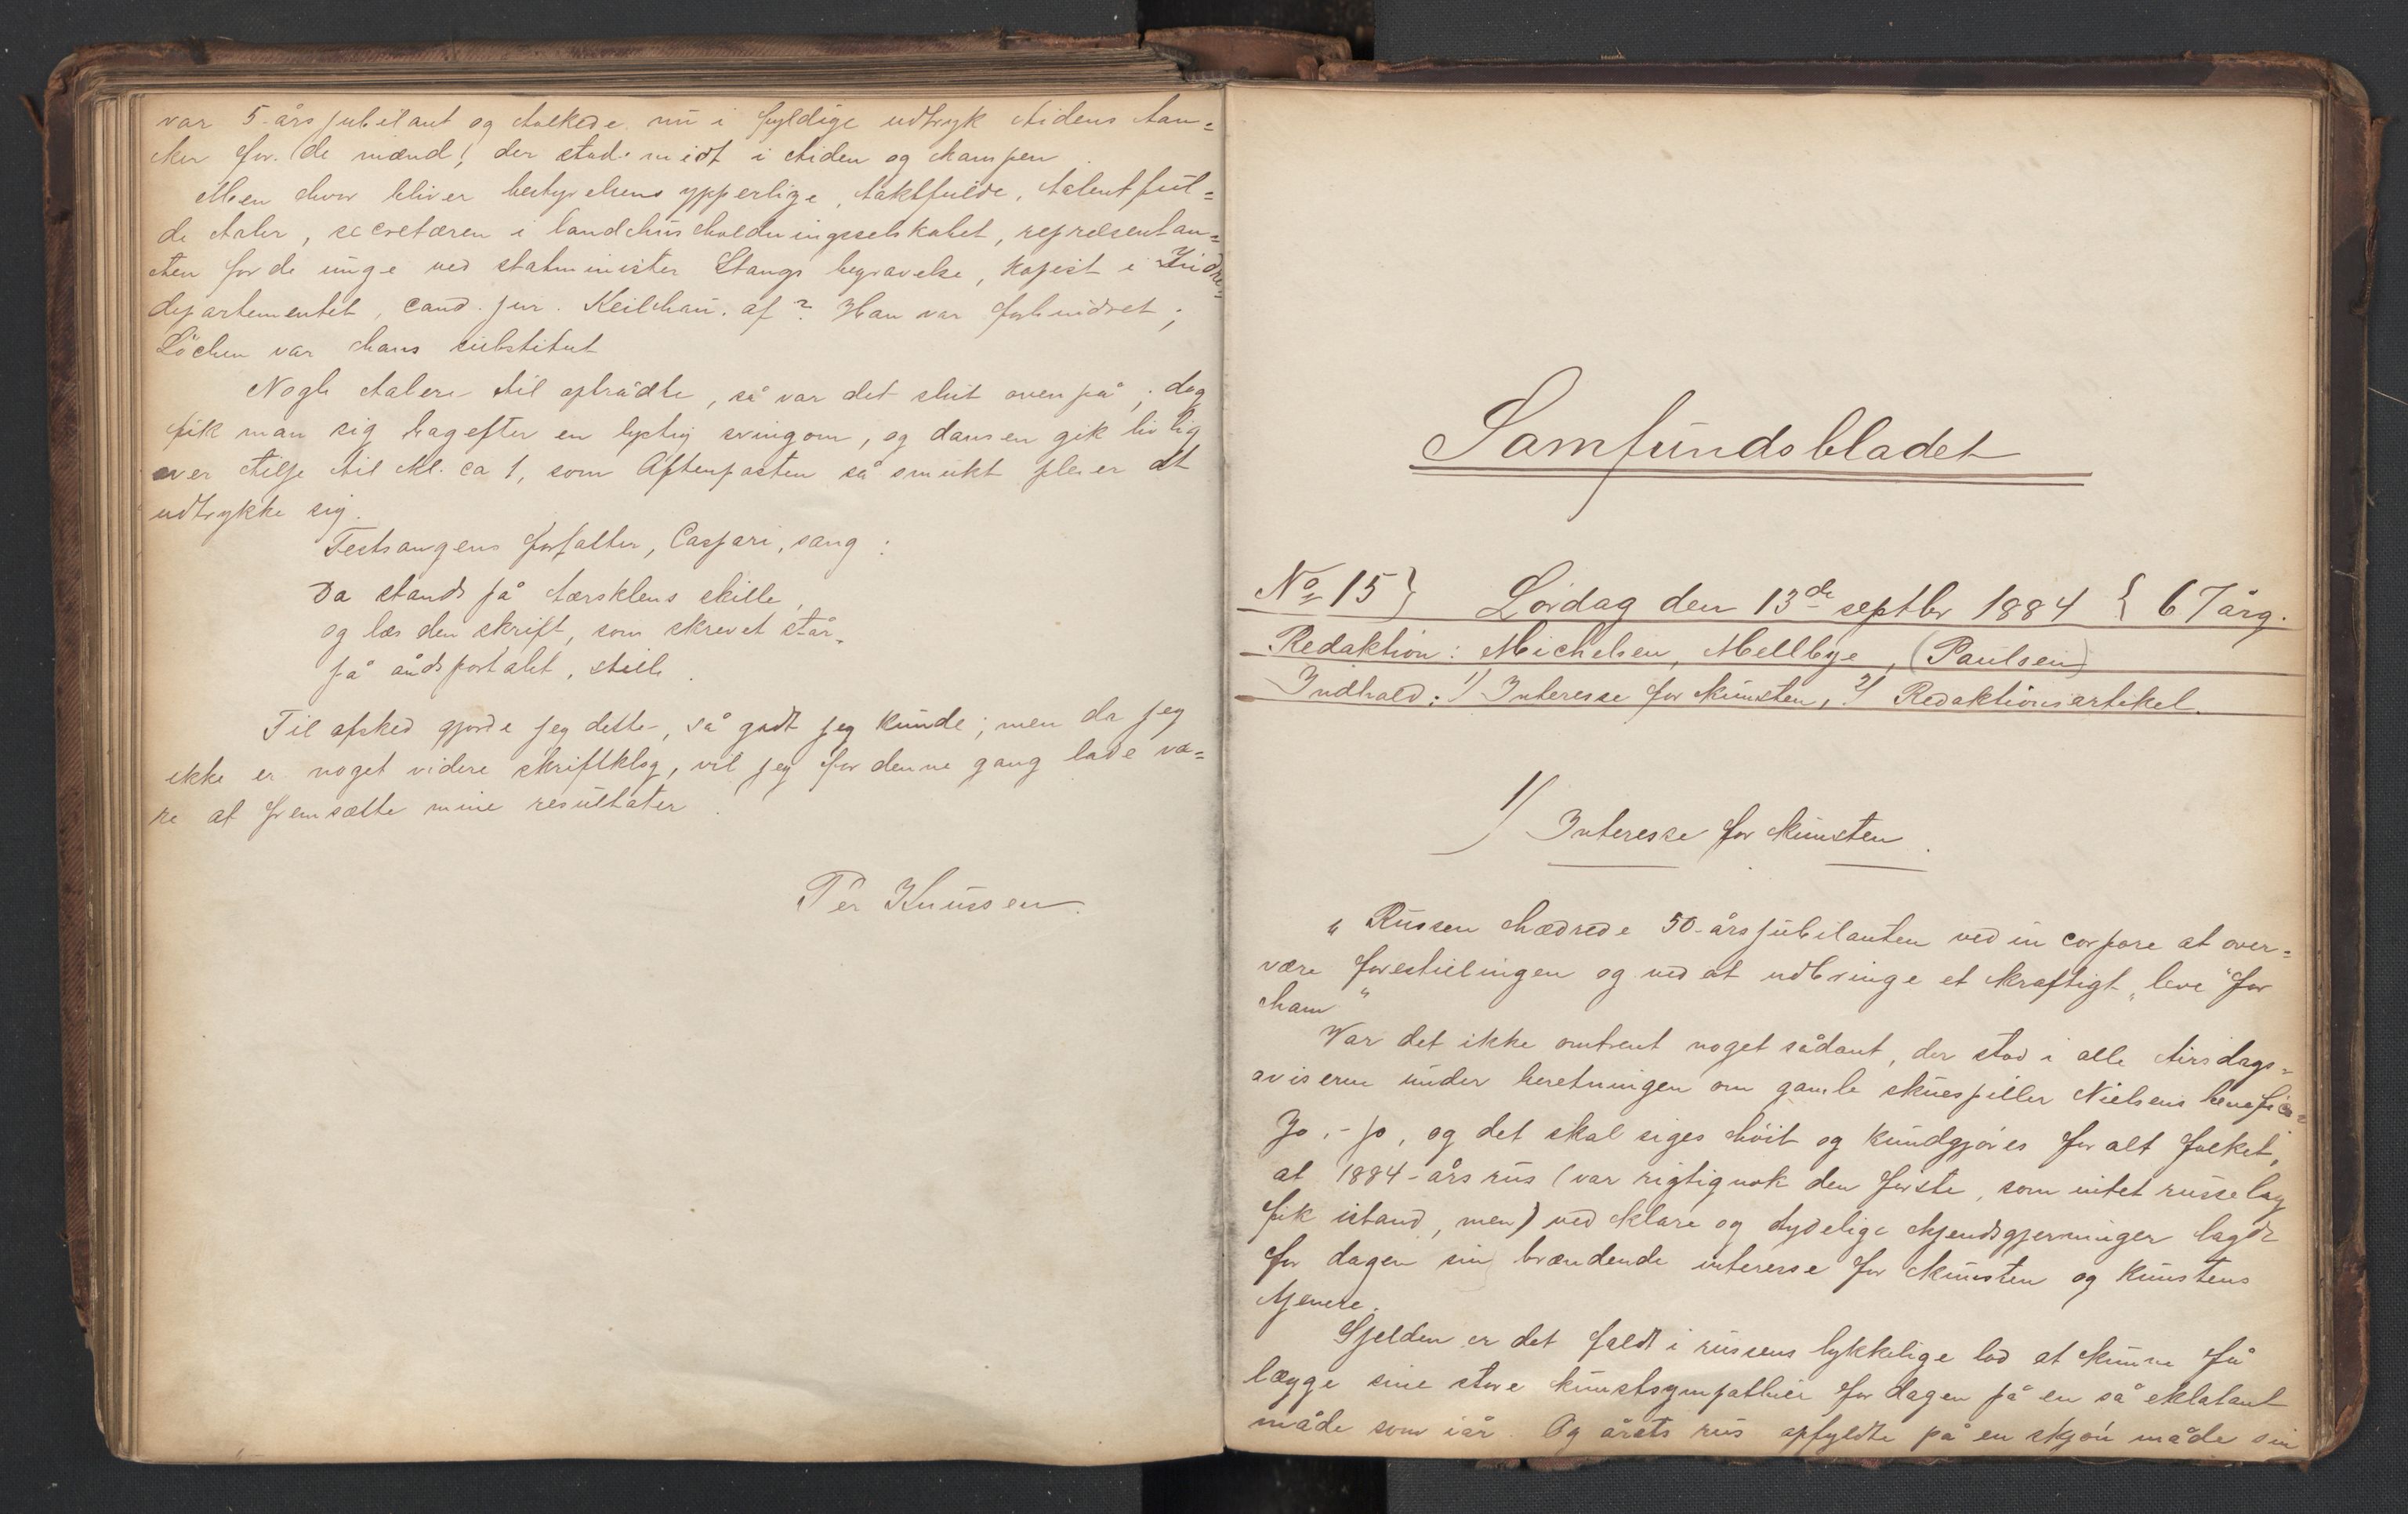 var 5-års jubilant og tolkede nu i fyldige udtryk tidens tan=
ker for (de mænd!, der stod midt i tiden og kampen
Men hvor bliver bestyrelsens ypperlige, taktfulde, talentful=
de taler, secretæren i landhusholdningsselskabet, repræsentan=
ten for de unge ved statsminister Stangs begravelse, kopist i Indre=
departementet, cand. jur. Keilhau. af? Han var forhindret;
Löchen var hans substitut
Nogle talere til optrådte, så var det slut ovenpå; dog
fik man sig bagefter en lystig svingom, og dansen gik livlig
over tilje til kl. ca 1, som Aftenposten så smukt pleier at
udtrykke sig.
Festsangens forfatter, Caspari, sang:
Da stands på tærsklens skille,
og læs den skrift, som skrevet står
på åndsportalet, stille.
Til afsked gjorde jeg dette, så godt jeg kunde; men da jeg
ikke er noget videre skriftklog, vil jeg for denne gang lade væ=
re at fremsætte mine resultater.
Per Knussen.
Samfundsbladet
No 15} Lördag den 13de septbr 1884 { 6 Tårg.
Redaktion: Michelsen, Mellbye, (Paulsen)
Indhold: 1/ Interesse for kunsten, 2/ Redaktionsartikel.
1/ Interesse for kunsten.
"Russen hædrede 50-årsjubilanten ved in corpore at over=
være forestillingen og ved at udbringe et kraftigt "leve" for
ham"
Var det ikke omtrent noget sådant, der stod i alle tirsdags=
aviserne under beretningen om gamle skuespiller Nielsens benefice=
Jo,- jo, og det skal siges höit og kundgjöres for alt folket,
at 1884-års rus (var rigtignok den förste, som intet russelag
fik istand, men) ved klare og tydelige kjendsgjerninger lagde
for dagen sin brændende interesse for kunsten og kunstens
tjenere.
Sjelden er det faldt i russens lykkelige lod at kunne få
lægge sine store kunstsympathier for dagen på en så eklatant
måde som iår. Og årets rus opfyldte på en skjön måde sin